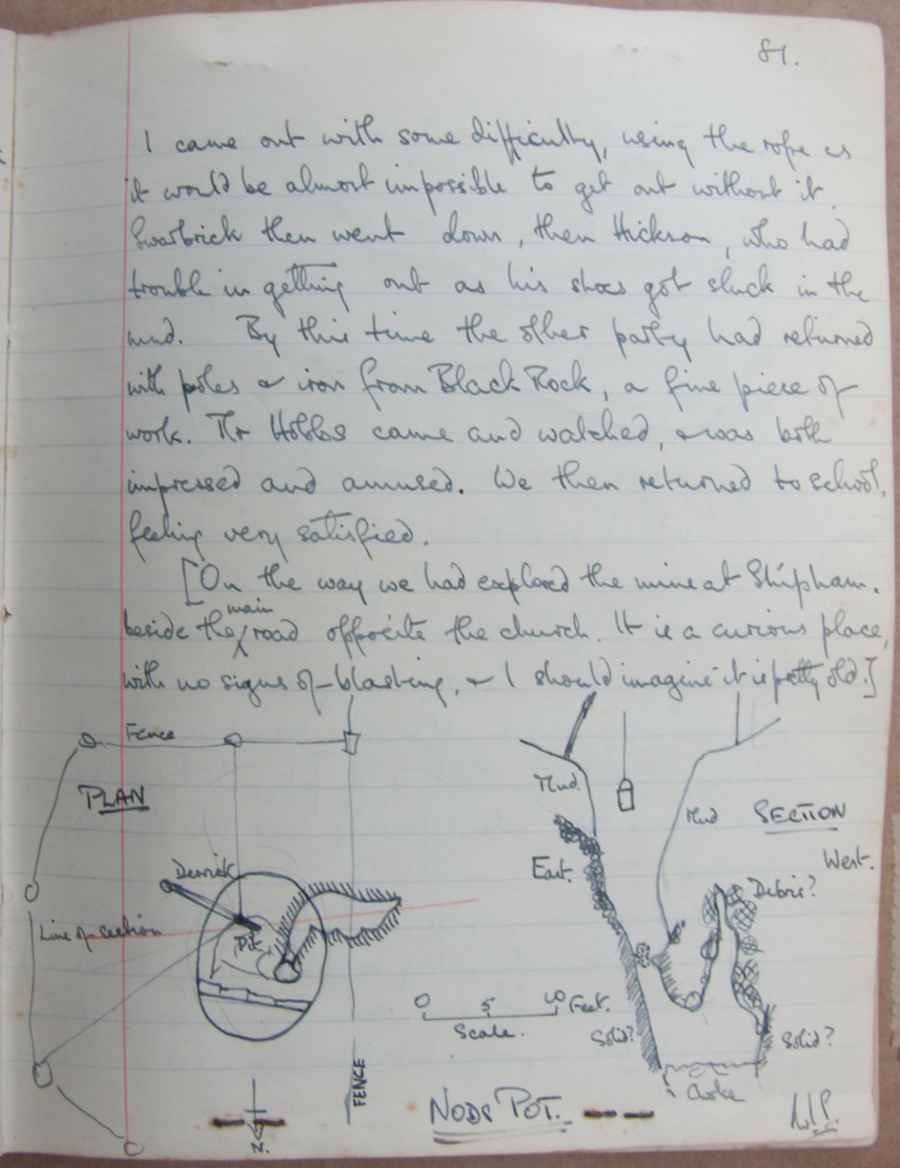 81.
I came out with some difficulty, using the rope as
it would be almost impossible to get out without it.
Swarbrick then went down, then Hickson, who had
trouble in getting out as his shoes got stuck in the
mud. By this time the other party had returned
with poles & iron from Black Rock, a fine piece of
work. Mr Hobbs came and watched, & was both
impressed and amused. We then returned to school,
feeling very satisfied.
[On the way we had explored the mine at Shipham.
beside the main road opposite the church. It is a curious place,
with no signs of blasting, & I should imagine it is pretty old.]
Fence
PLAN
Derrick
Line of section
Pit
FENCE
N.
0 5 10 Feet.
Scale.
NODS POT.
Mud.
Mud
SECTION
East.
West.
Debris?
Solid?
Solid?
Choke